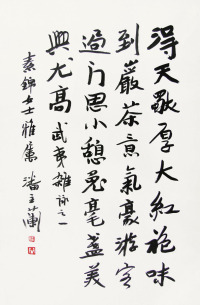 得天獨厚大紅袍味
到巖茶意氣豪游客
過门思小憩兔毫盞美
興尤高 武夷雜詠之一
素錦女士雅屬 潘主蘭